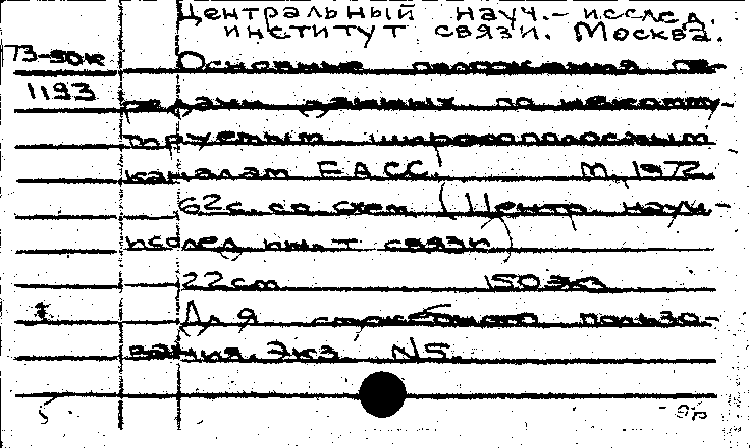 Центральный науч.- исслед.
институт связи. Москва.
73-50к Основные положения пе-
1193 редачи данных по некомму-
тируемым широкополосным
каналам ЕАСС. М. 1972.
62с. со схем. (Центр. научн-
исслед. ин-т связи)
22см 150 экз
Для служебного пользо-
вания. Экз. N5.
5.